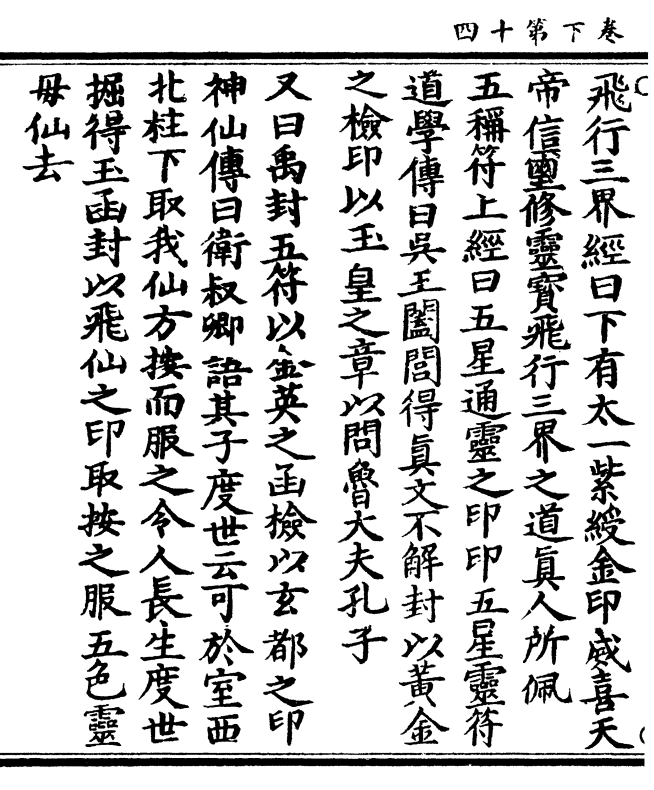 卷下第十四
飛行三界經曰下有太一紫綬金印威喜天
帝信璽修靈寶飛行三界之道眞人所佩
五稱符上經曰五星通靈之印印五星靈符
道學傳曰吳王闔閭得眞文不解封以黃金
之檢印以玉皇之章以問魯大夫孔子
又曰禹封五符以金英之函檢以玄都之印
神仙傳曰衛叔卿語其子度世云可於室西
北柱下取我仙方按而服之令人長生度世
掘得玉函封以飛仙之印取按之服五色靈
母仙去